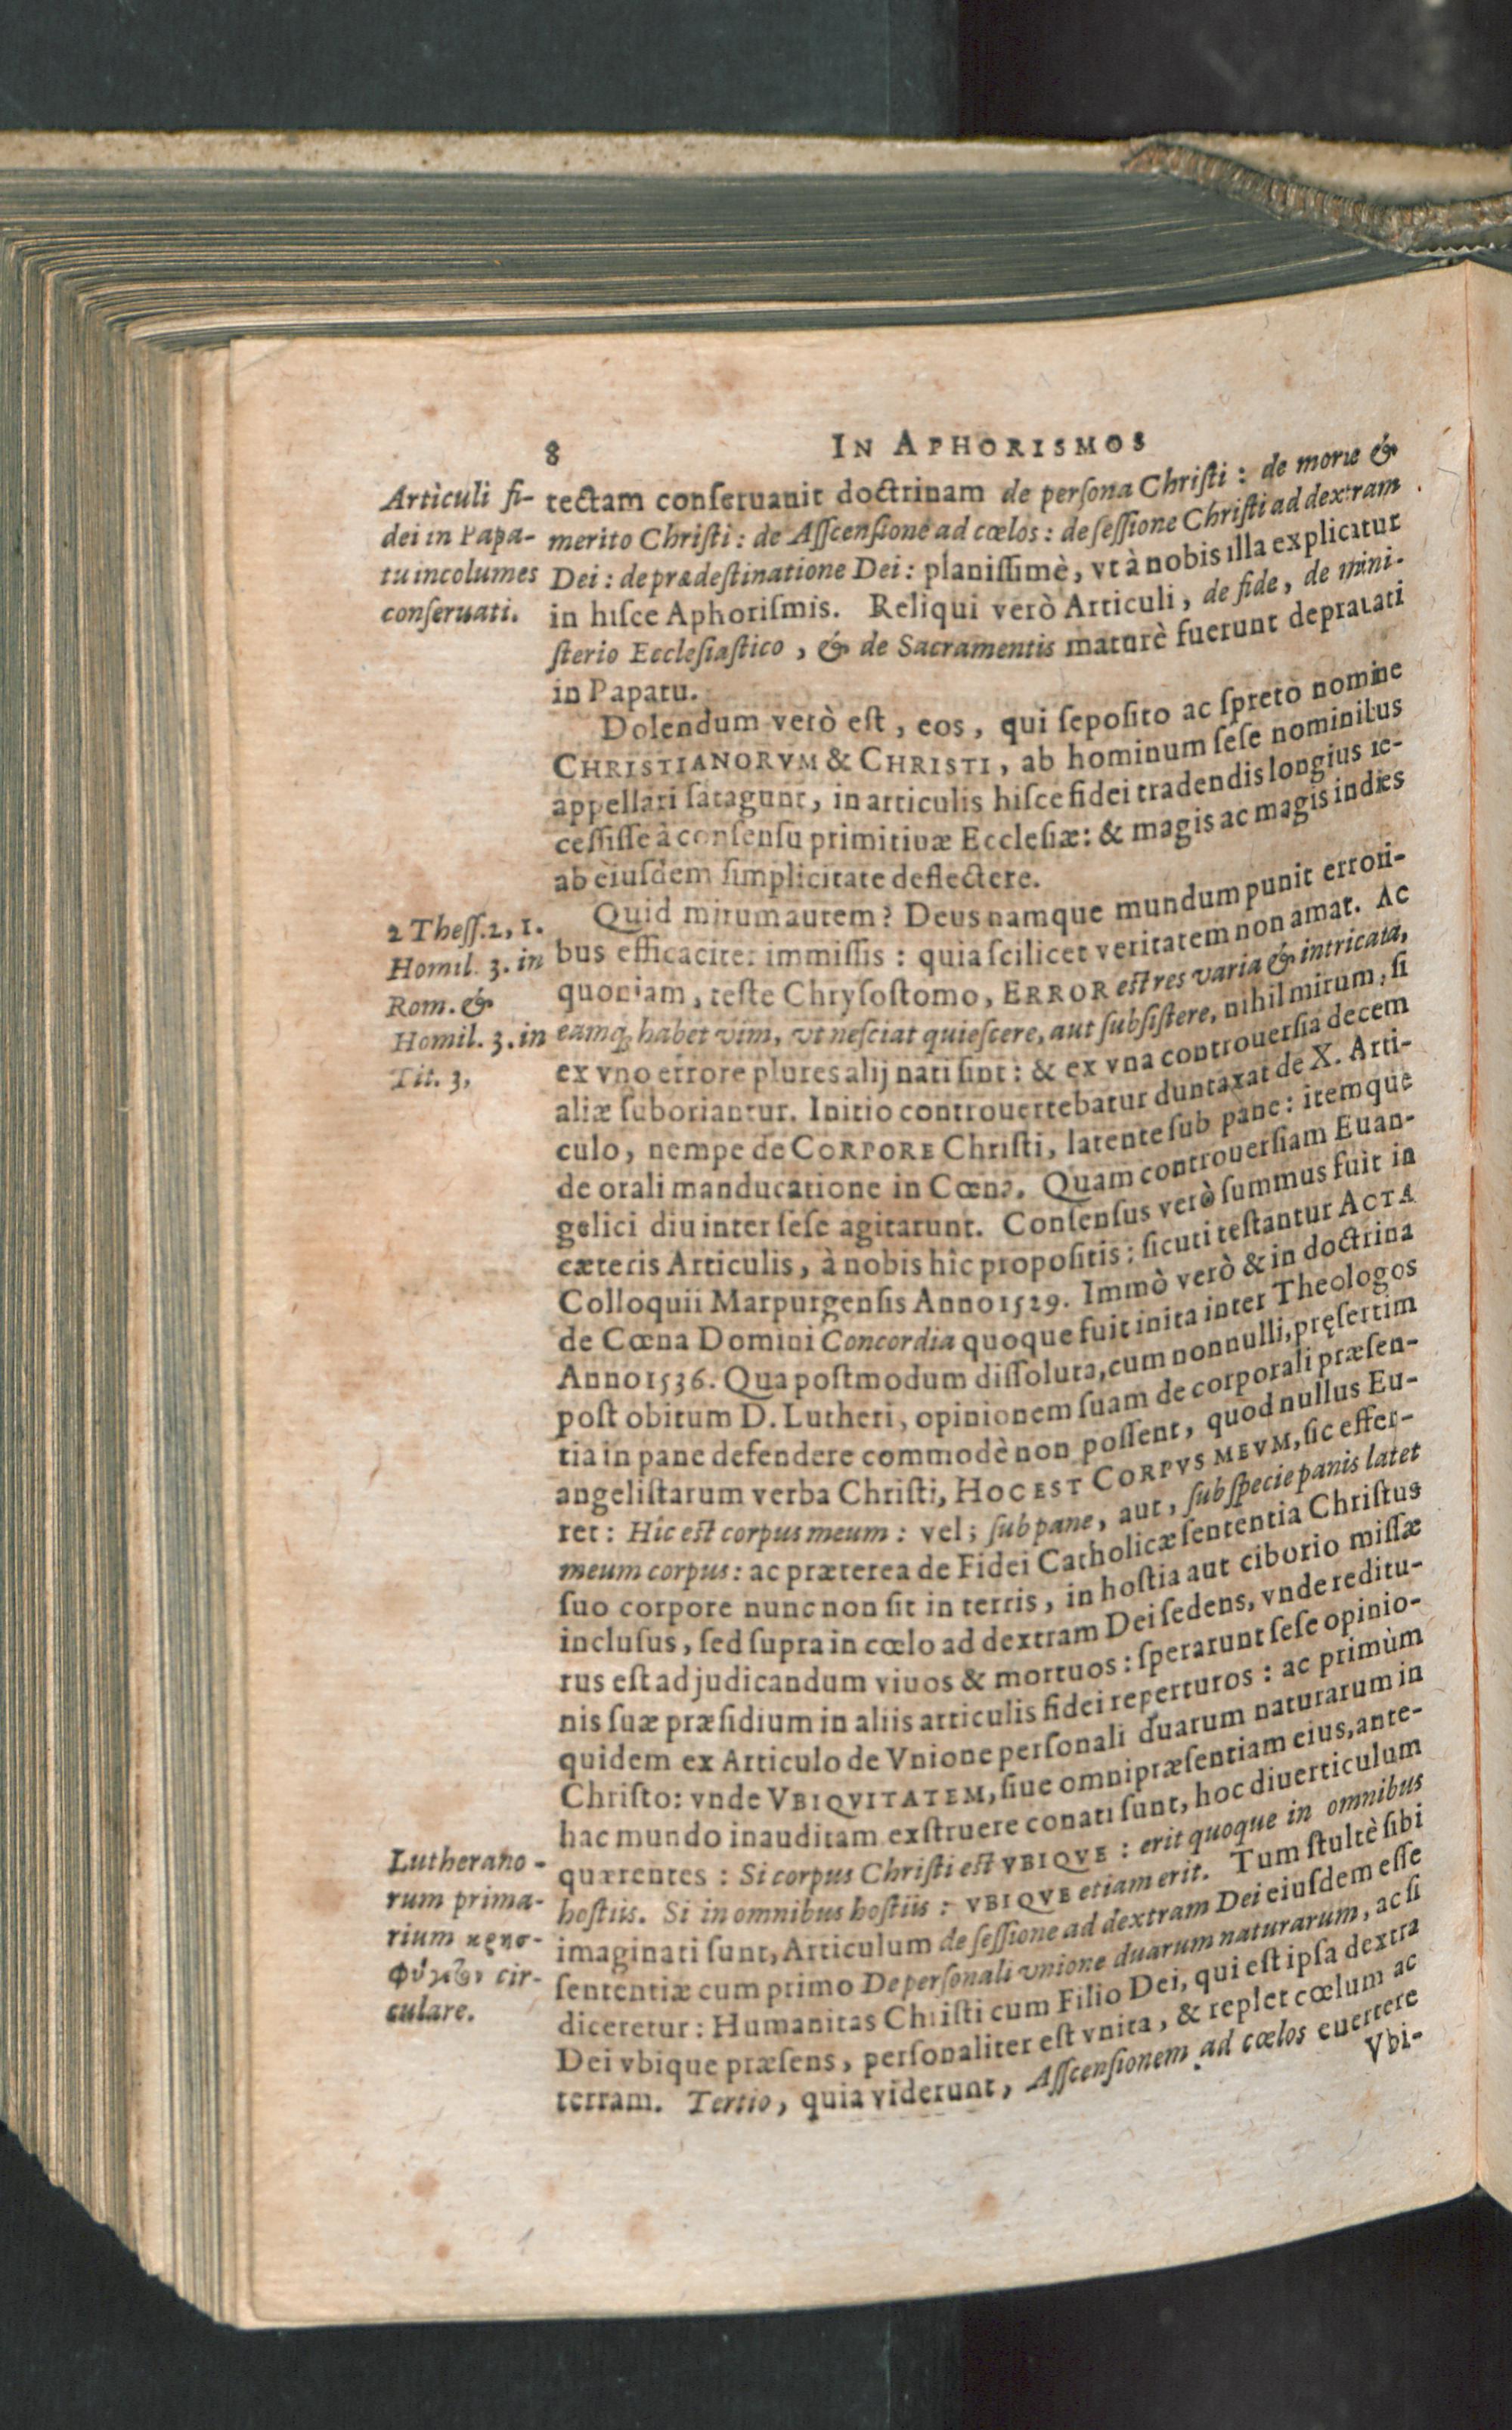 8 IN APHORISMOS
Articuli fi-
dei in Papa-
tu incolumes
conſeruati.
tectam conſeruauit doctrinam de perſona Chriſti : de morte &
merito Chriſti : de Aſſcenſione ad cœlos : de ſeſſione Chriſti ad dextram
Dei : de prædeſtinatione Dei : planiſſimè, vt à nobis illa explicatur
in hiſce Aphoriſmis. Reliqui verò Articuli, de fide, de mini-
ſterio Eccleſiaſtico, & de Sacramentis maturè fuerunt deprauati
in Papatu.
Dolendum verò eſt, eos, qui ſepoſito ac ſpreto nomine
CHRISTIANORVM & CHRISTI, ab hominum ſeſe nominibus
appellari ſatagunt, in articulis hiſce fidei tradendis longius re-
ceſſiſſe à conſenſu primitiuæ Eccleſiæ: & magis ac magis indies
ab eiuſdem ſimplicitate deflectere.
2 Theſſ. 2, 1.
Homil. 3. in
Rom. &
Homil. 3. in
Tit. 3,
Quid mirum autem? Deus namque mundum punit errori-
bus efficaciter immiſſis : quia ſcilicet veritatem non amat. Ac
quoniam, teſte Chryſoſtomo, ERROR eſt res varia & intricata,
eamq; habet vim, vt neſciat quieſcere, aut ſubſiſtere, nihil mirum, ſi
ex vno errore plures alij nati ſint : & ex vna controuerſia decem
aliæ ſuboriantur. Initio controuertebatur duntaxat de X. Arti-
culo, nempe de CORPORE Chriſti, latente ſub pane : itemque
de orali manducatione in Cœna. Quam controuerſiam Euan-
gelici diu inter ſeſe agitarunt. Conſenſus verò ſummus fuit in
cæteris Articulis, à nobis hîc propoſitis : ſicuti teſtantur ACTA
Colloquii Marpurgenſis Anno 1529. Immò verò & in doctrina
de Cœna Domini Concordia quoque fuit inita inter Theologos
Anno 1536. Qua poſtmodum diſſoluta, cum nonnulli, pręſertim
poſt obitum D. Lutheri, opinionem ſuam de corporali præſen-
tia in pane defendere commodè non poſſent, quòd nullus Eu-
angeliſtarum verba Chriſti, HOC EST CORPVS MEVM, ſic effer-
ret : Hîc eſt corpus meum : vel ; ſub pane, aut, ſub ſpecie panis latet
meum corpus : ac præterea de Fidei Catholicæ ſententia Chriſtus
ſuo corpore nunc non ſit in terris, in hoſtia aut ciborio miſſæ
incluſus, ſed ſupra in cœlo ad dextram Dei ſedens, vnde reditu-
rus eſt ad judicandum viuos & mortuos : ſperarunt ſeſe opinio-
nis ſuæ præſidium in aliis articulis fidei reperturos : ac primùm
quidem ex Articulo de Vnione perſonali duarum naturarum in
Chriſto: vnde VBIQVITATEM, ſiue omnipræſentiam eius, ante-
hac mundo inauditam exſtruere conati ſunt, hoc diuerticulum
Lutherano-
rum prima-
rium κρησ-
φύγετον cir-
culare.
quærentes : Si corpus Chriſti eſt VBIQVE : erit quoque in omnibus
hoſtiis. Si in omnibus hoſtiis : VBIQVE etiam erit. Tum ſtultè ſibi
imaginati ſunt, Articulum de ſeſſione ad dextram Dei eiuſdem eſſe
ſententiæ cum primo De perſonali vnione duarum naturarum, ac ſi
diceretur : Humanitas Chriſti cum Filio Dei, qui eſt ipſa dextra
Dei vbique præſens, perſonaliter eſt vnita, & replet cœlum ac
terram. Tertio, quia viderunt, Aſſcenſionem ad cœlos euertere
Vbi-